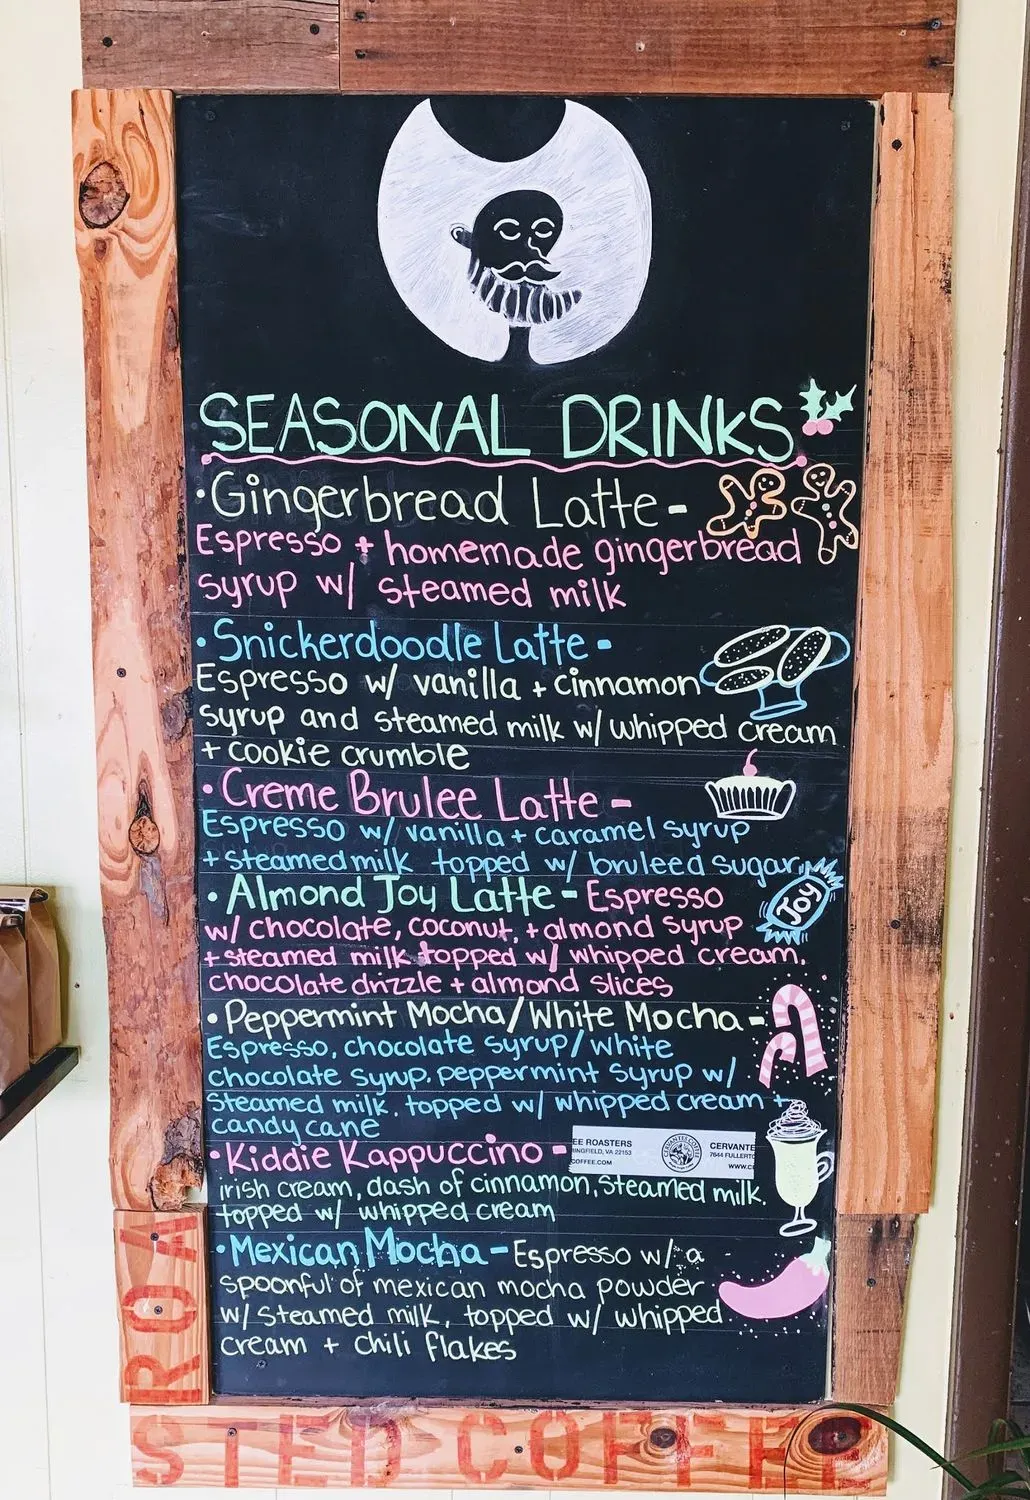 SEASONAL DRINKS
• Gingerbread Latte -
Espresso + homemade gingerbread
syrup w/ steamed milk
• Snickerdoodle Latte -
Espresso w/ vanilla + cinnamon
syrup and steamed milk w/ whipped cream
+ cookie crumble
• Creme Brulee Latte -
Espresso w/ vanilla + caramel syrup
+ steamed milk topped w/ bruleed sugar
Joy
• Almond Joy Latte - Espresso
w/ chocolate, coconut, + almond syrup
+ steamed milk topped w/ whipped cream,
chocolate drizzle + almond slices
• Peppermint Mocha/White Mocha -
Espresso, chocolate syrup/white
chocolate syrup, peppermint syrup w/
steamed milk, topped w/ whipped cream +
candy cane
• Kiddie Kappuccino -
EE ROASTERS
INGFIELD, VA 22153
COFFEE.COM
CERVANTES COFFEE
CERVANTE
7644 FULLERTO
WWW.CE
irish cream, dash of cinnamon, steamed milk,
topped w/ whipped cream
• Mexican Mocha - Espresso w/ a
spoonful of mexican mocha powder
w/ steamed milk, topped w/ whipped
cream + chili flakes
ROA
STED COFFEE